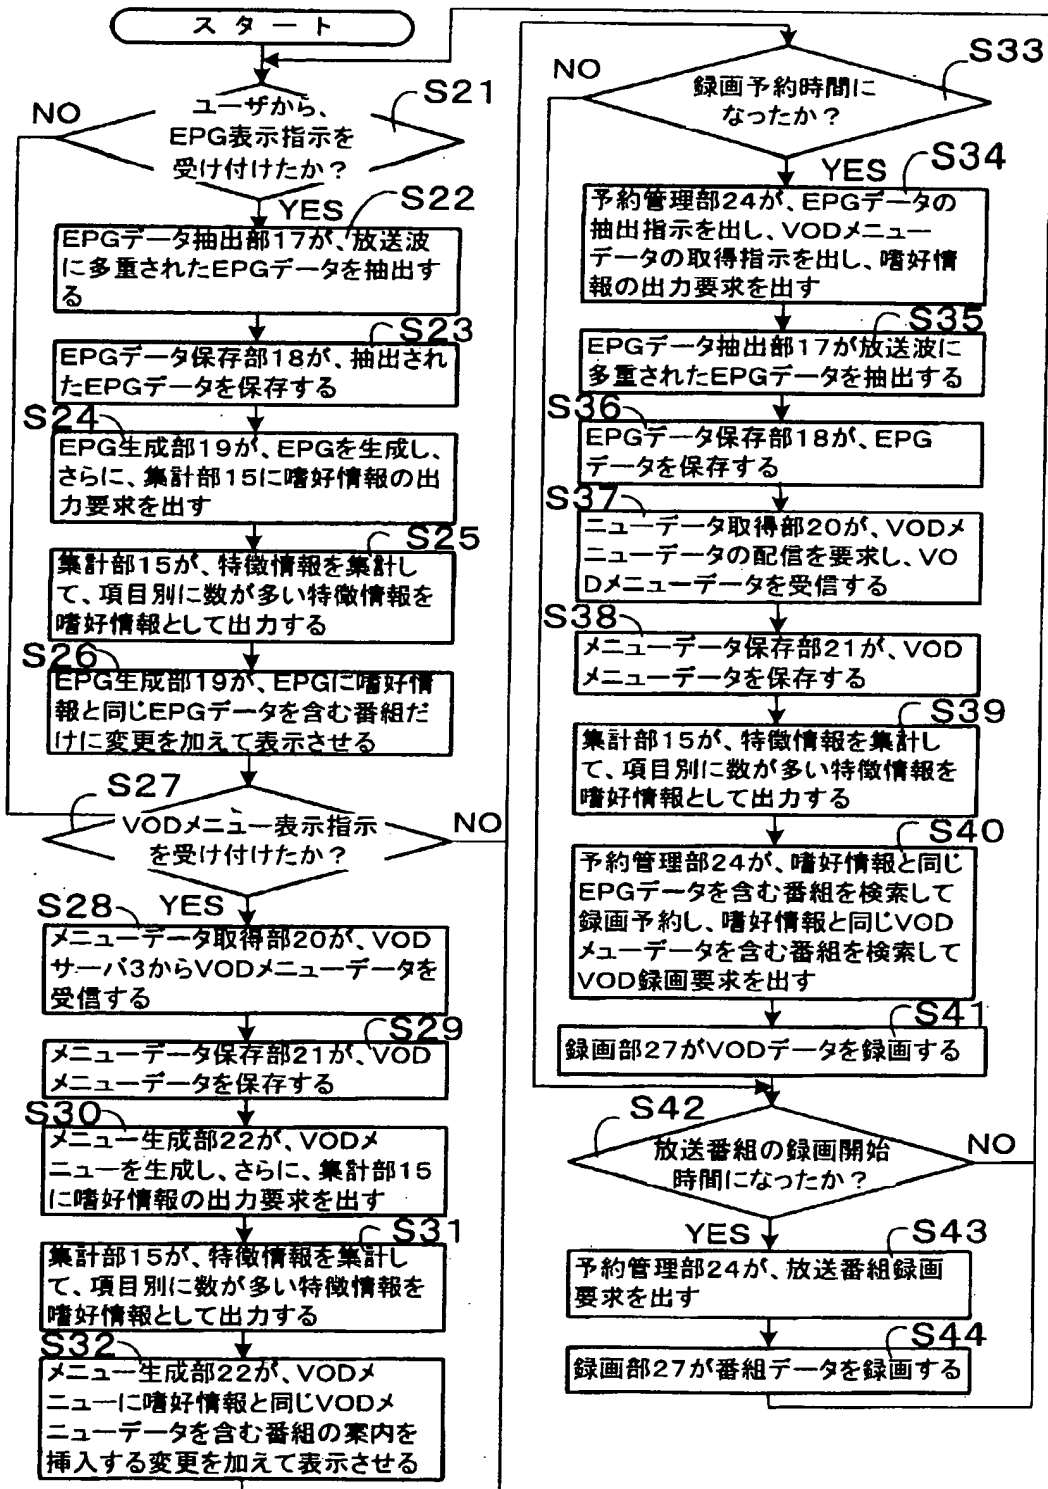 スタート
S21
NO
ユーザから、
EPG表示指示を
受け付けたか？
YES
S22
EPGデータ抽出部17が、放送波
に多重されたEPGデータを抽出す
る
S23
EPGデータ保存部18が、抽出され
たEPGデータを保存する
S24
EPG生成部19が、EPGを生成し、
さらに、集計部15に嗜好情報の出
力要求を出す
S25
集計部15が、特徴情報を集計し
て、項目別に数が多い特徴情報を
嗜好情報として出力する
S26
EPG生成部19が、EPGに嗜好情
報と同じEPGデータを含む番組だ
けに変更を加えて表示させる
S27
VODメニュー表示指示
を受け付けたか？
NO
YES
S28
メニューデータ取得部20が、VOD
サーバ3からVODメニューデータを
受信する
S29
メニューデータ保存部21が、VOD
メニューデータを保存する
S30
メニュー生成部22が、VODメ
ニューを生成し、さらに、集計部15
に嗜好情報の出力要求を出す
S31
集計部15が、特徴情報を集計し
て、項目別に数が多い特徴情報を
嗜好情報として出力する
S32
メニュー生成部22が、VODメ
ニューに嗜好情報と同じVODメ
ニューデータを含む番組の案内を
挿入する変更を加えて表示させる
S33
NO
録画予約時間に
なったか？
YES
S34
予約管理部24が、EPGデータの
抽出指示を出し、VODメニュー
データの取得指示を出し、嗜好情
報の出力要求を出す
S35
EPGデータ抽出部17が放送波に
多重されたEPGデータを抽出する
S36
EPGデータ保存部18が、EPG
データを保存する
S37
ニューデータ取得部20が、VODメ
ニューデータの配信を要求し、VO
Dメニューデータを受信する
S38
メニューデータ保存部21が、VOD
メニューデータを保存する
S39
集計部15が、特徴情報を集計し
て、項目別に数が多い特徴情報を
嗜好情報として出力する
S40
予約管理部24が、嗜好情報と同じ
EPGデータを含む番組を検索して
録画予約し、嗜好情報と同じVOD
メューデータを含む番組を検索して
VOD録画要求を出す
S41
録画部27がVODデータを録画する
S42
放送番組の録画開始
時間になったか？
NO
YES
S43
予約管理部24が、放送番組録画
要求を出す
S44
録画部27が番組データを録画する